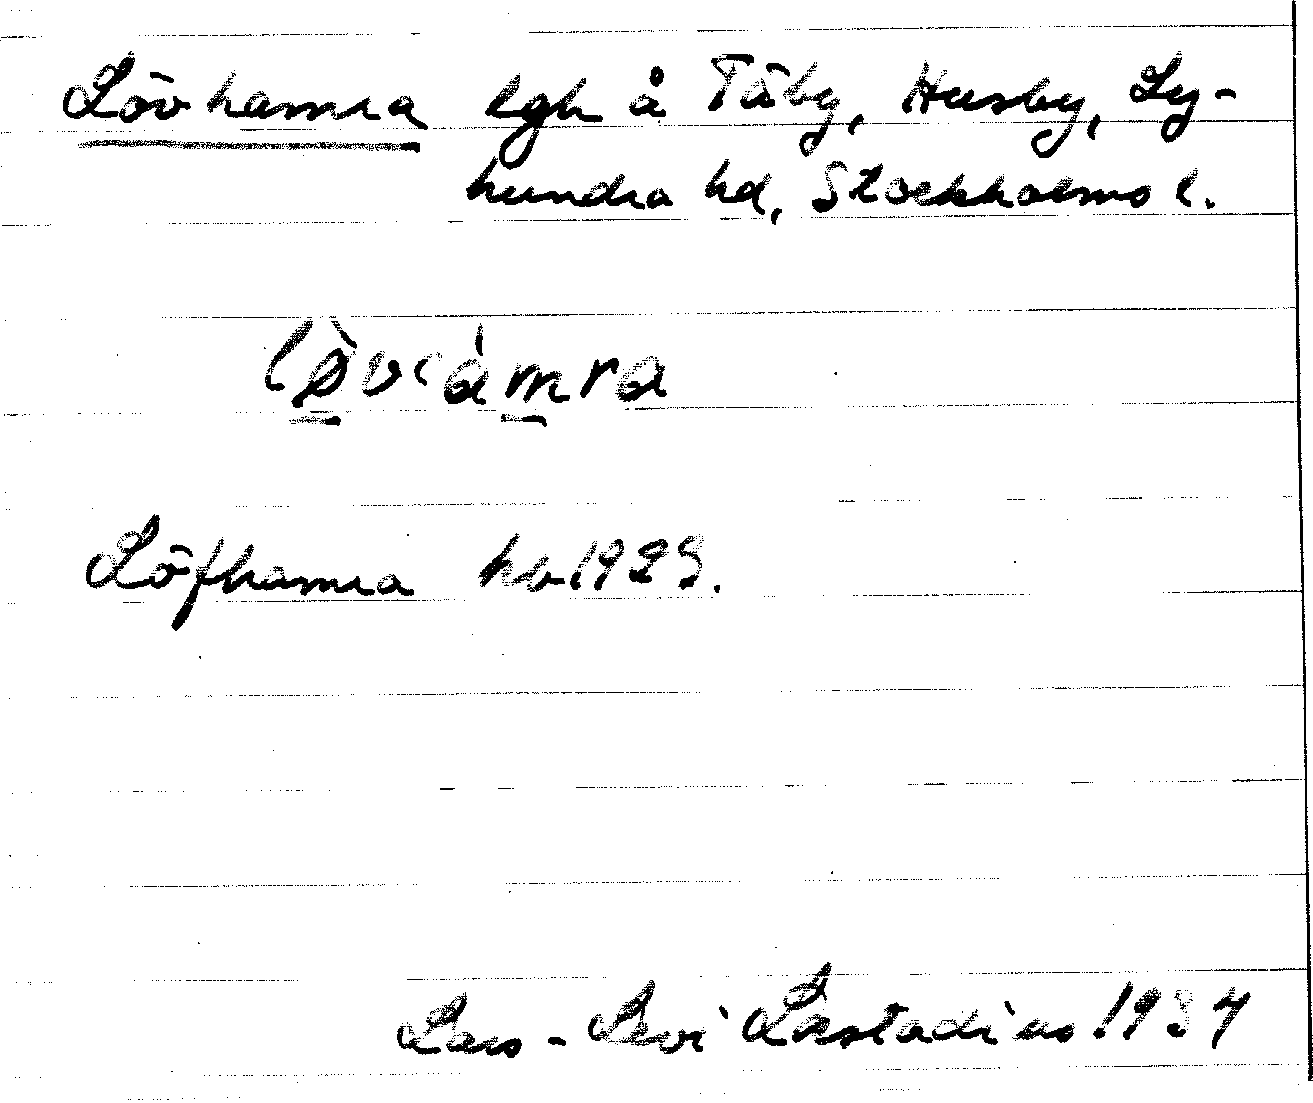 Lövhamra lgh å Täby, Husby, Ly-
hundra hd, Stockholms l.
lø̀vʻámra
Löfhamra hb 1925.
Lars-Levi Læstadius 1934